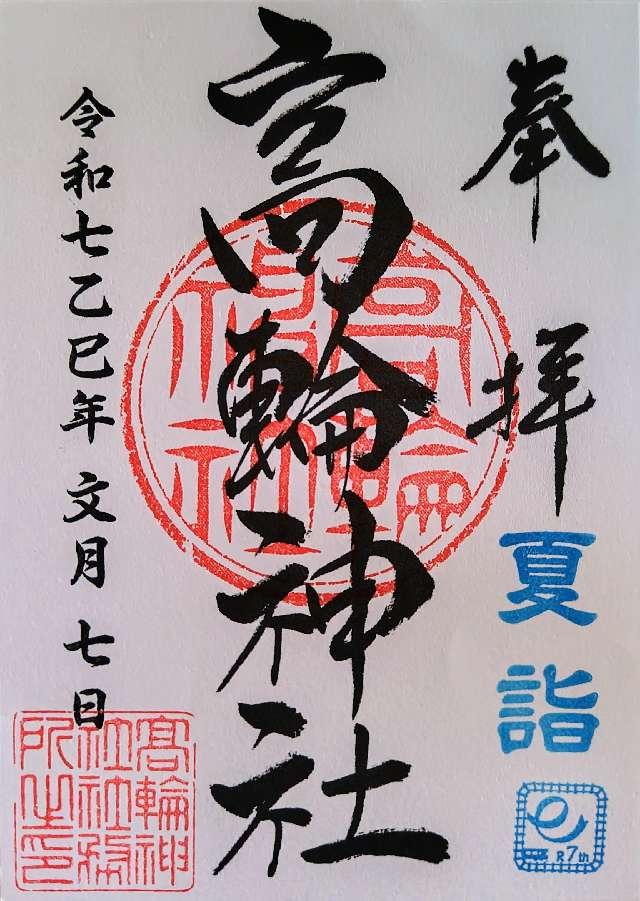 奉拝
夏詣
R7th
高輪神社
高輪神社
令和七乙巳年 文月 七日
高輪神
社社務
所之印